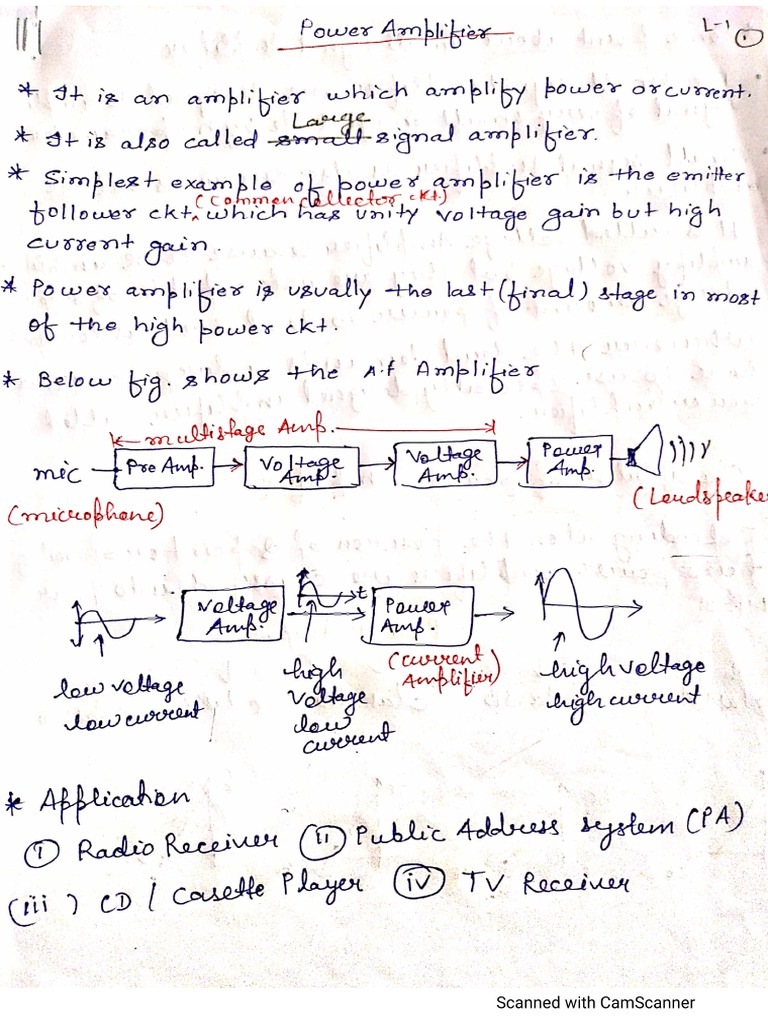 Power Amplifier
L-1
1
* It is an amplifier which amplify power or current.
Large
* It is also called small signal amplifier.
* Simplest example of power amplifier is the emitter
(Common collector ckt)
follower ckt. which has unity voltage gain but high
current gain.
* Power amplifier is usually the last (final) stage in most
of the high power ckt.
* Below fig. shows the A.F Amplifier
multistage Amp.
mic
Pre Amp.
Voltage Amp.
Voltage Amp.
Power Amp.
(microphone)
(Loudspeaker
Voltage Amp.
t
Power Amp.
(current Amplifier)
low voltage
low current
high
voltage
low
current
high voltage
high current
* Application
(i) Radio Receiver (ii) Public Address system (PA)
(iii) CD / Casette Player (iv) TV Receiver
Scanned with CamScanner